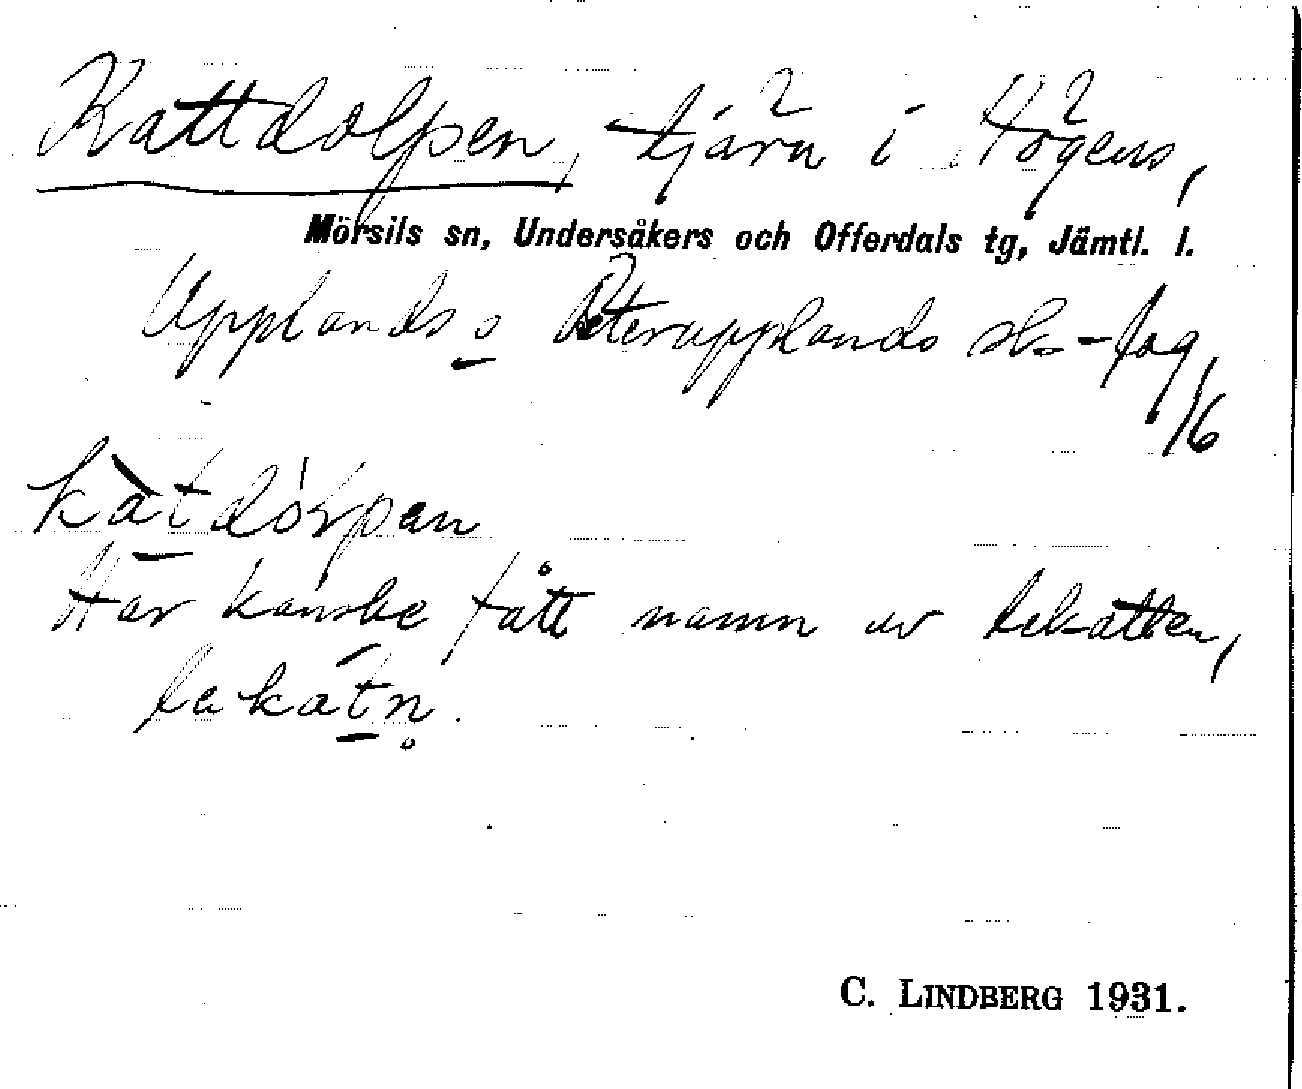 Kattdolpen, tjärn i Högens,
Mörsils sn, Undersåkers och Offerdals tg, Jämtl. l.
Upplands o Österupplands sks-lag
1/6
kàtdólpan
Har kanske fått namn av lekatten,
lekátn̥.
C. LINDBERG 1931.